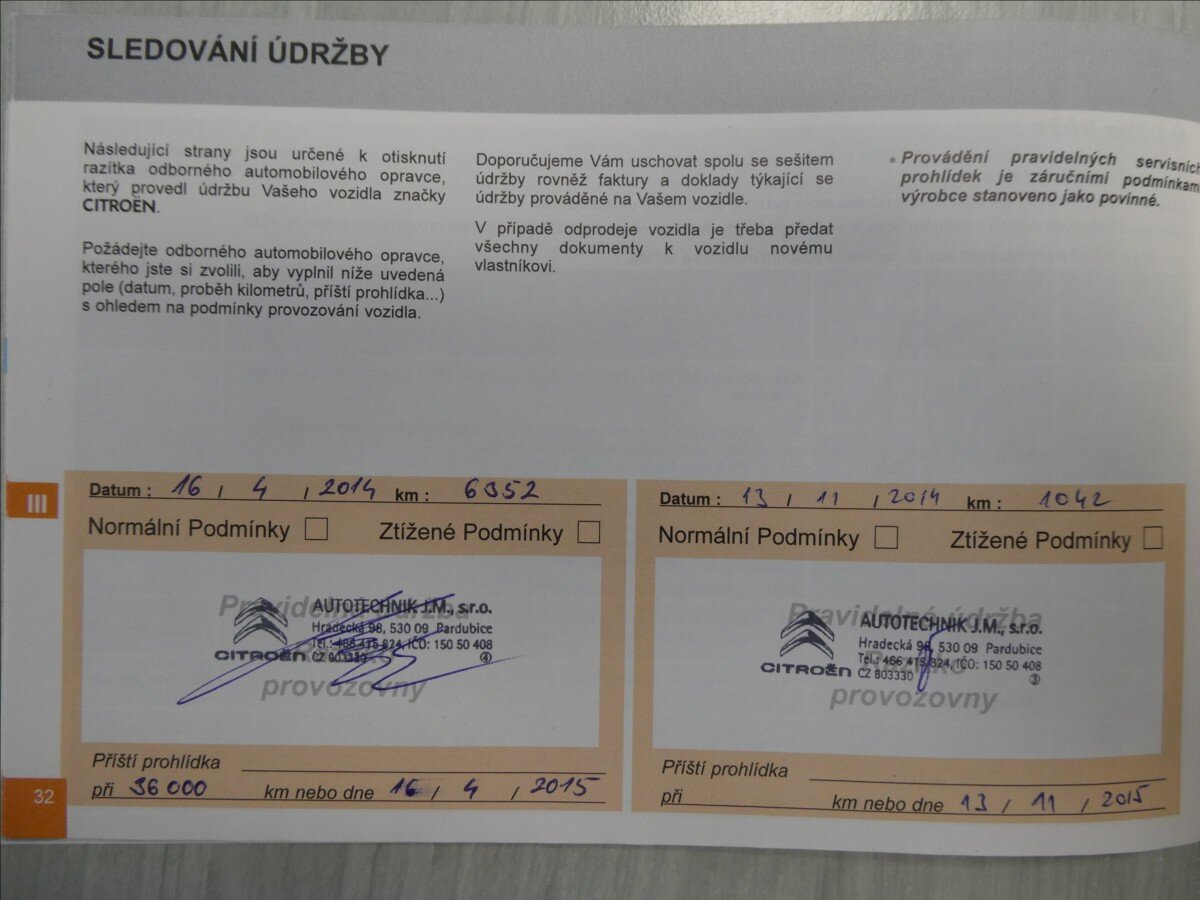 SLEDOVÁNÍ ÚDRŽBY
Následující strany jsou určené k otisknutí
razítka odborného automobilového opravce,
který provedl údržbu Vašeho vozidla značky
CITROËN.
Požádejte odborného automobilového opravce,
kterého jste si zvolili, aby vyplnil níže uvedená
pole (datum, proběh kilometrů, příští prohlídka...)
s ohledem na podmínky provozování vozidla.
Doporučujeme Vám uschovat spolu se sešitem
údržby rovněž faktury a doklady týkající se
údržby prováděné na Vašem vozidle.
V případě odprodeje vozidla je třeba předat
všechny dokumenty k vozidlu novému
vlastníkovi.
• Provádění pravidelných servisních
prohlídek je záručními podmínkami
výrobce stanoveno jako povinné.
III
Datum : 16 / 4 / 2014 km : 6352
Normální Podmínky Ztížené Podmínky
Pravidelná údržba
AUTOTECHNIK J.M., s.r.o.
Hradecká 98, 530 09 Pardubice
Tel.: 466 415 824, IČO: 150 50 408
CITROËN CZ 803330 4
provozovny
Příští prohlídka
při 36 000 km nebo dne 16 / 4 / 2015
Datum : 13 / 11 / 2014 km : 1042
Normální Podmínky Ztížené Podmínky
Pravidelná údržba
AUTOTECHNIK J.M., s.r.o.
Hradecká 98, 530 09 Pardubice
Tel.: 466 415 824, IČO: 150 50 408
CITROËN CZ 803330 3
Razítko
provozovny
Příští prohlídka
při km nebo dne 13 / 11 / 2015
32